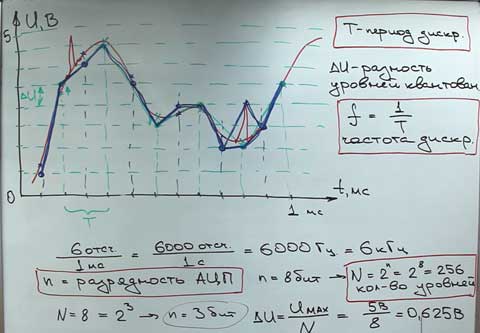 U,В
5
ΔU
0
T
t,мс
1 мс
T-период дискр.
ΔU-разность
уровней квантован
f = 1/T
частота дискр.
6 отсч./1мс = 6000 отсч./1с = 6000 Гц = 6 кГц
n = разрядность АЦП
n = 8 бит → N = 2ⁿ = 2⁸ = 256
кол-во уровней
N = 8 = 2³ → n = 3 бит
ΔU = Uмах/N = 5В/8 = 0,625В